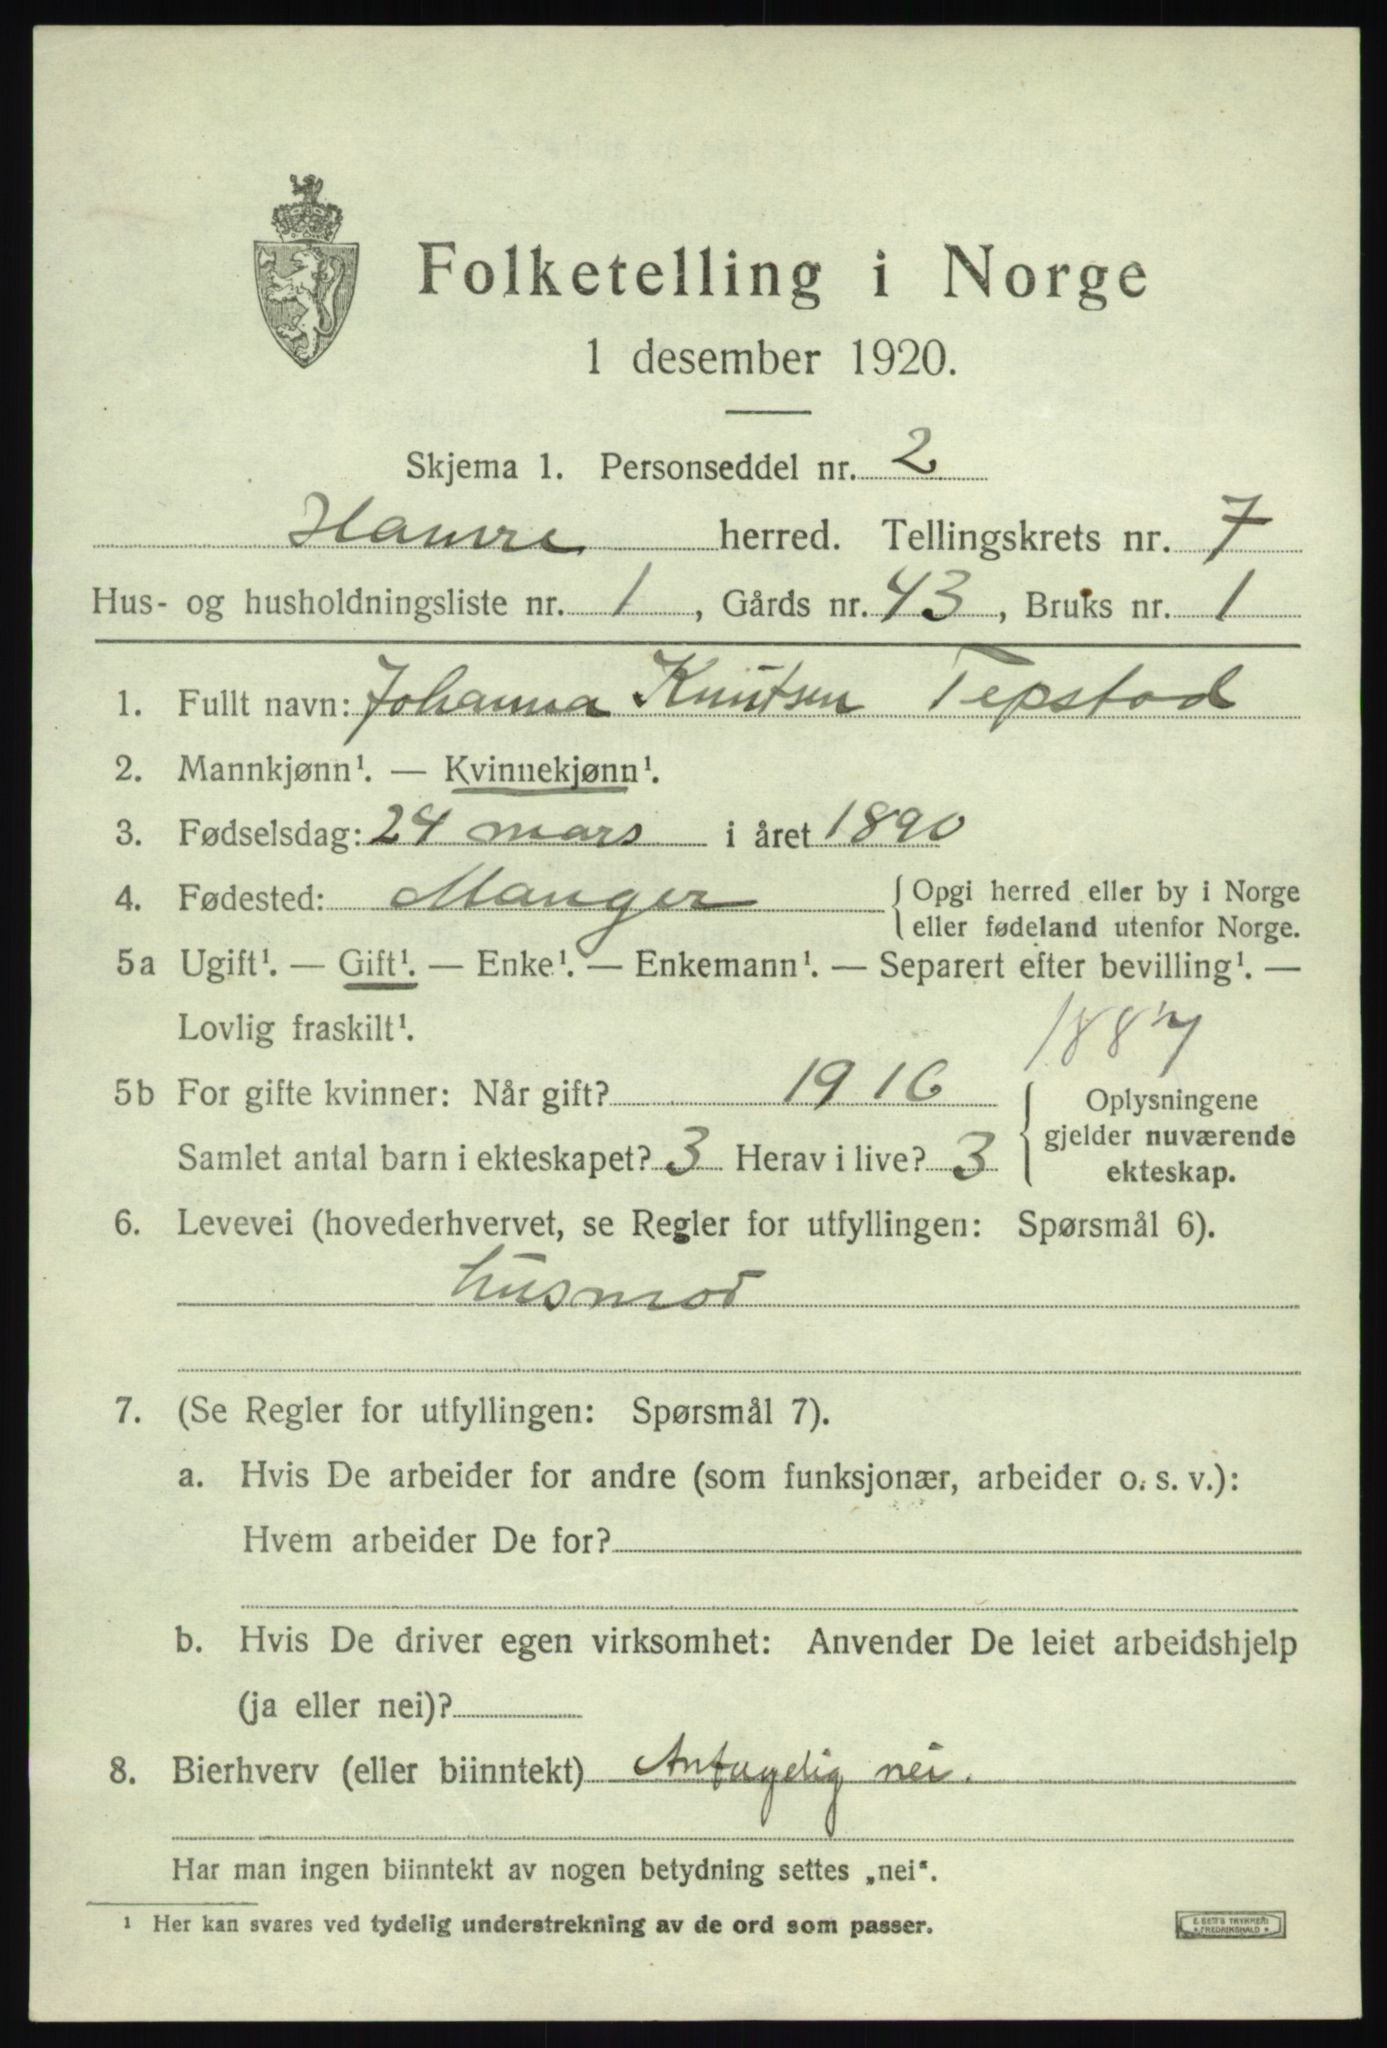 Folketelling i Norge
1 desember 1920.
Skjema 1. Personseddel nr. 2
Hamre herred. Tellingskrets nr. 7
Hus- og husholdningsliste nr. 1, Gårds nr. 43, Bruks nr. 1
1. Fullt navn: Johanna Knutsen Tepstad
2. Mannkjønn¹. — Kvinnekjønn¹.
3. Fødselsdag: 24 mars i året 1890
4. Fødested: Manger { Opgi herred eller by i Norge
eller fødeland utenfor Norge.
5a Ugift¹. — Gift¹. — Enke¹. — Enkemann¹. — Separert efter bevilling¹. —
Lovlig fraskilt¹.
5b For gifte kvinner: Når gift? 1916
Samlet antal barn i ekteskapet? 3 Herav i live? 3
{ Oplysningene
gjelder nuværende
ekteskap.
6. Levevei (hovederhvervet, se Regler for utfyllingen: Spørsmål 6).
husmor
7. (Se Regler for utfyllingen: Spørsmål 7).
a. Hvis De arbeider for andre (som funksjonær, arbeider o. s. v.):
Hvem arbeider De for?
b. Hvis De driver egen virksomhet: Anvender De leiet arbeidshjelp
(ja eller nei)?
8. Bierhverv (eller biinntekt) nei.
Har man ingen biinntekt av nogen betydning settes „nei“.
¹ Her kan svares ved tydelig understrekning av de ord som passer.